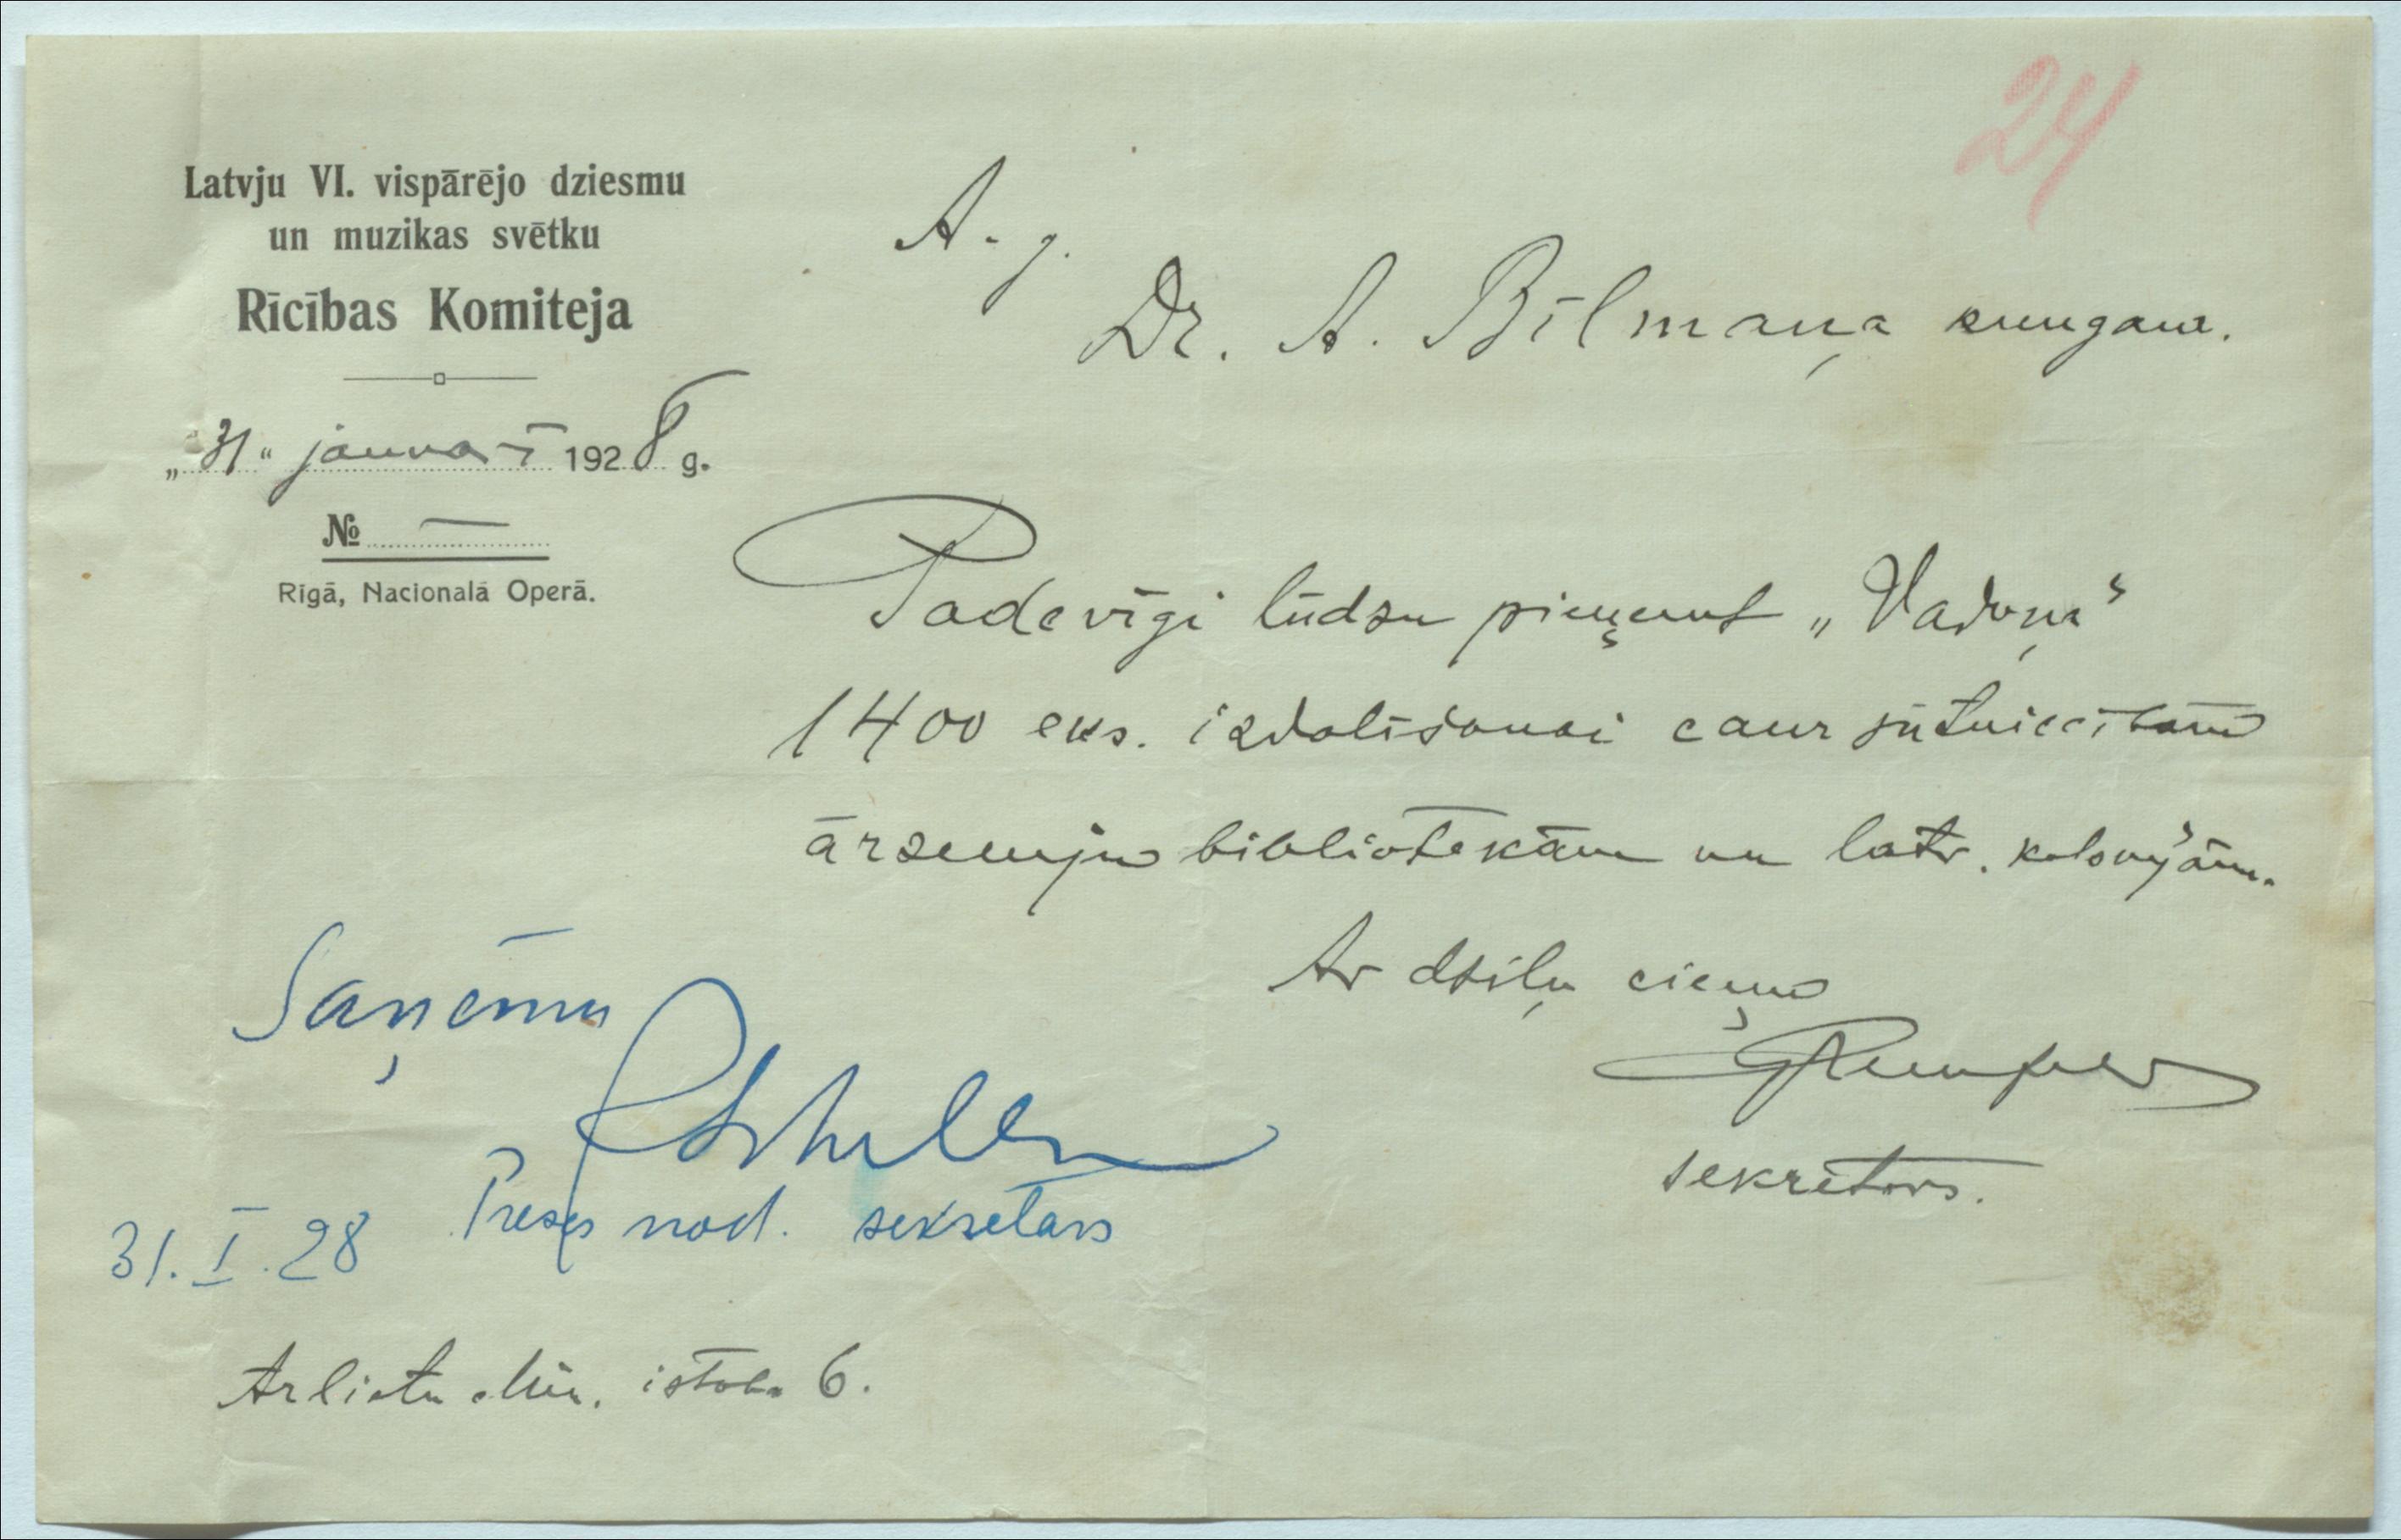 24
Latvju VI. vispārējo dziesmu
un muzikas svētku
Rīcības Komiteja
„31" janvarī 1928 g.
№ —
Rīgā, Nacionalā Operā.
A. g.
Dr. A. Bīlmaņa kungam.
Padevīgi lūdzu pieņemt „Vadoņa"
1400 eks. izdalīšanai caur sūtniecībām
ārzemju bibliotēkām un latv. kolonijām.
Ar dziļu cieņu
sekretārs.
Saņēmu
Preses nod. sekretārs
31. I. 28
Arlietu Min. istaba 6.